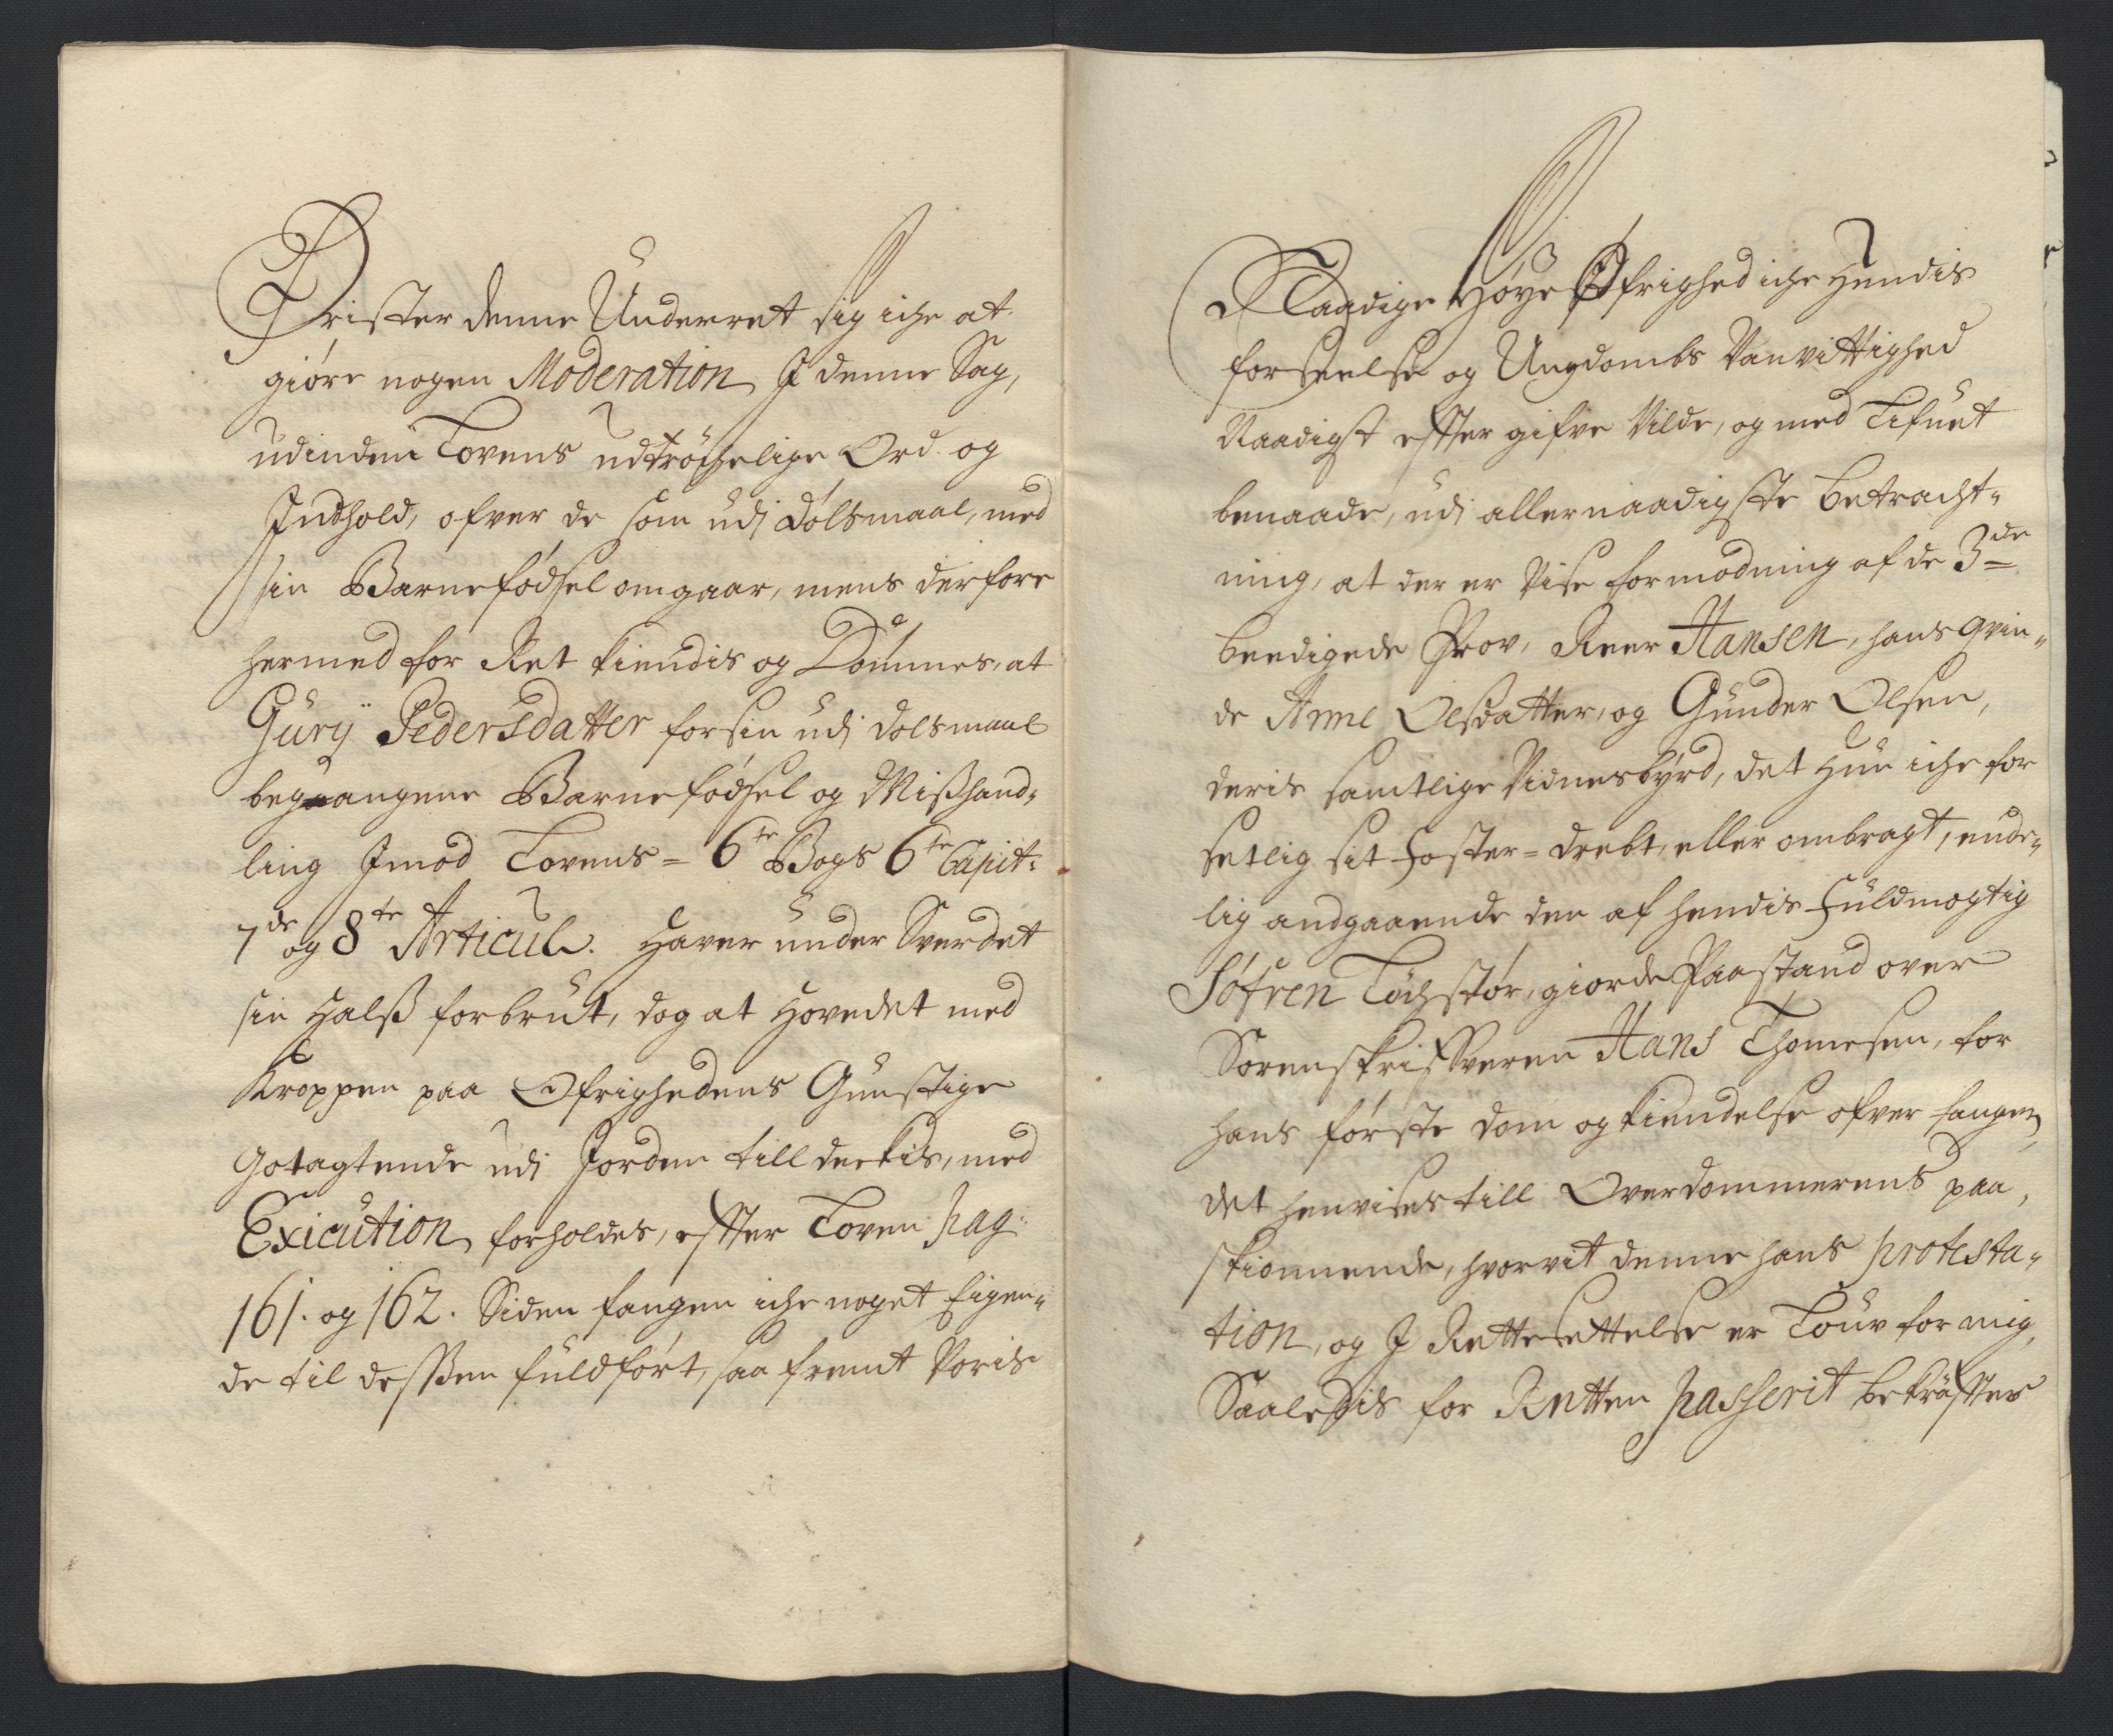 Drister denne Underret sig iche at
giøre nogen Moderation I denne Sag,
udinden Lovens udtrøchelige Ord og
Indhold, ofver de som udj dølsmaal, med
sin Barnefødsel omgaar, mens derfore
hermed for Ret kiendis og Dømmes, at
Gurÿ Pedersdatter for sin udj dølsmaal
begaangene Barnefødsel og Mißhand-
ling Imod Lovens = 6te Bogs 6te Capit:
7de og 8te Articul. Haver under Sverdet
sin Halß forbrut, dog at Hovedet med
Kroppen paa Øfrighedens Gunstige
Gotagtende udj Jorden till destis, med
Exicution forholdes, effter Loven pag:
161. og 162. Siden fangen iche noget Eigen-
de til dessen fuldført, saa fremt Voris
Naadige Høye Øfrighed iche Hendis
forseelse og Ungdombs Vanvittighed
Naadigst effter gifve Vilde, og med Lifuet
benaade, udj allernaadigste betracht-
ning, at der er Vise formodning af de 3de
beedigede Prov, Reer Hansen, hans qvin-
de Anne Olsdatter, og Gunder Olsen,
deris samtlige Vidnesbyrd, det Hun iche for
setlig sit Foster = drebt, eller ombragt, ende-
lig andgaaende den af hendis Fuldmogtig
Søfren Løchstør, giorde Paastand over
Sorenskrifveren Hans Thomesen, for
hans første dom og kiendelse ofver fangen,
det henvises till Overdommerens paa,
skiønnende, hvorvit denne hans protesta-
tion, og I Rettesettelse er Louv for mig,
Saaledis for Retten passerit bekræffter